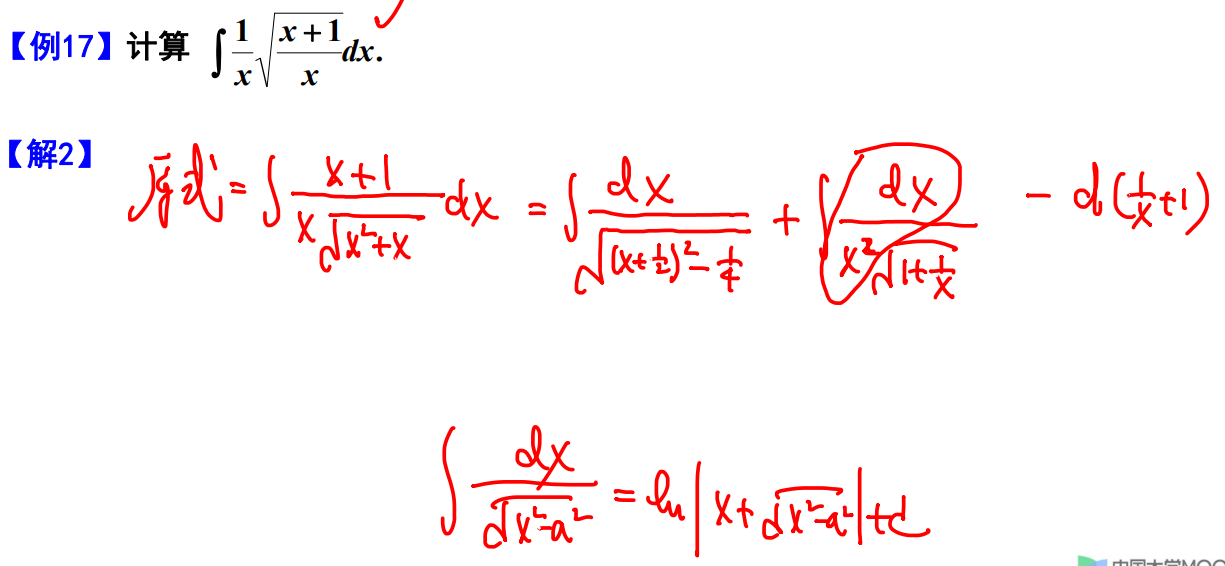 【例17】计算 ∫ 1/x √((x+1)/x) dx.
【解2】 原式 = ∫ (x+1)/(x√(x²+x)) dx = ∫ dx/√((x+1/2)²-1/4) + ∫ dx/(x²√(1+1/x)) - d(1/x+1)
∫ dx/√(x²-a²) = ln|x+√(x²-a²)|+C